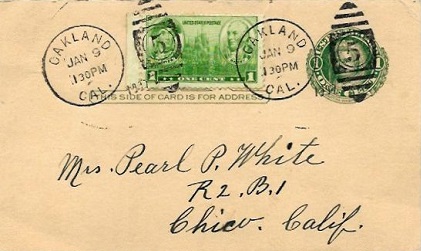 OAKLAND
JAN 9
1 30PM
CAL.
UNITED STATES POSTAGE
1 ONE CENT 1
5
OAKLAND
JAN 9
1 30PM
CAL.
5
1
THIS SIDE OF CARD IS FOR ADDRESS
Mrs. Pearl P. White
R2. B.1
Chico. Calif.